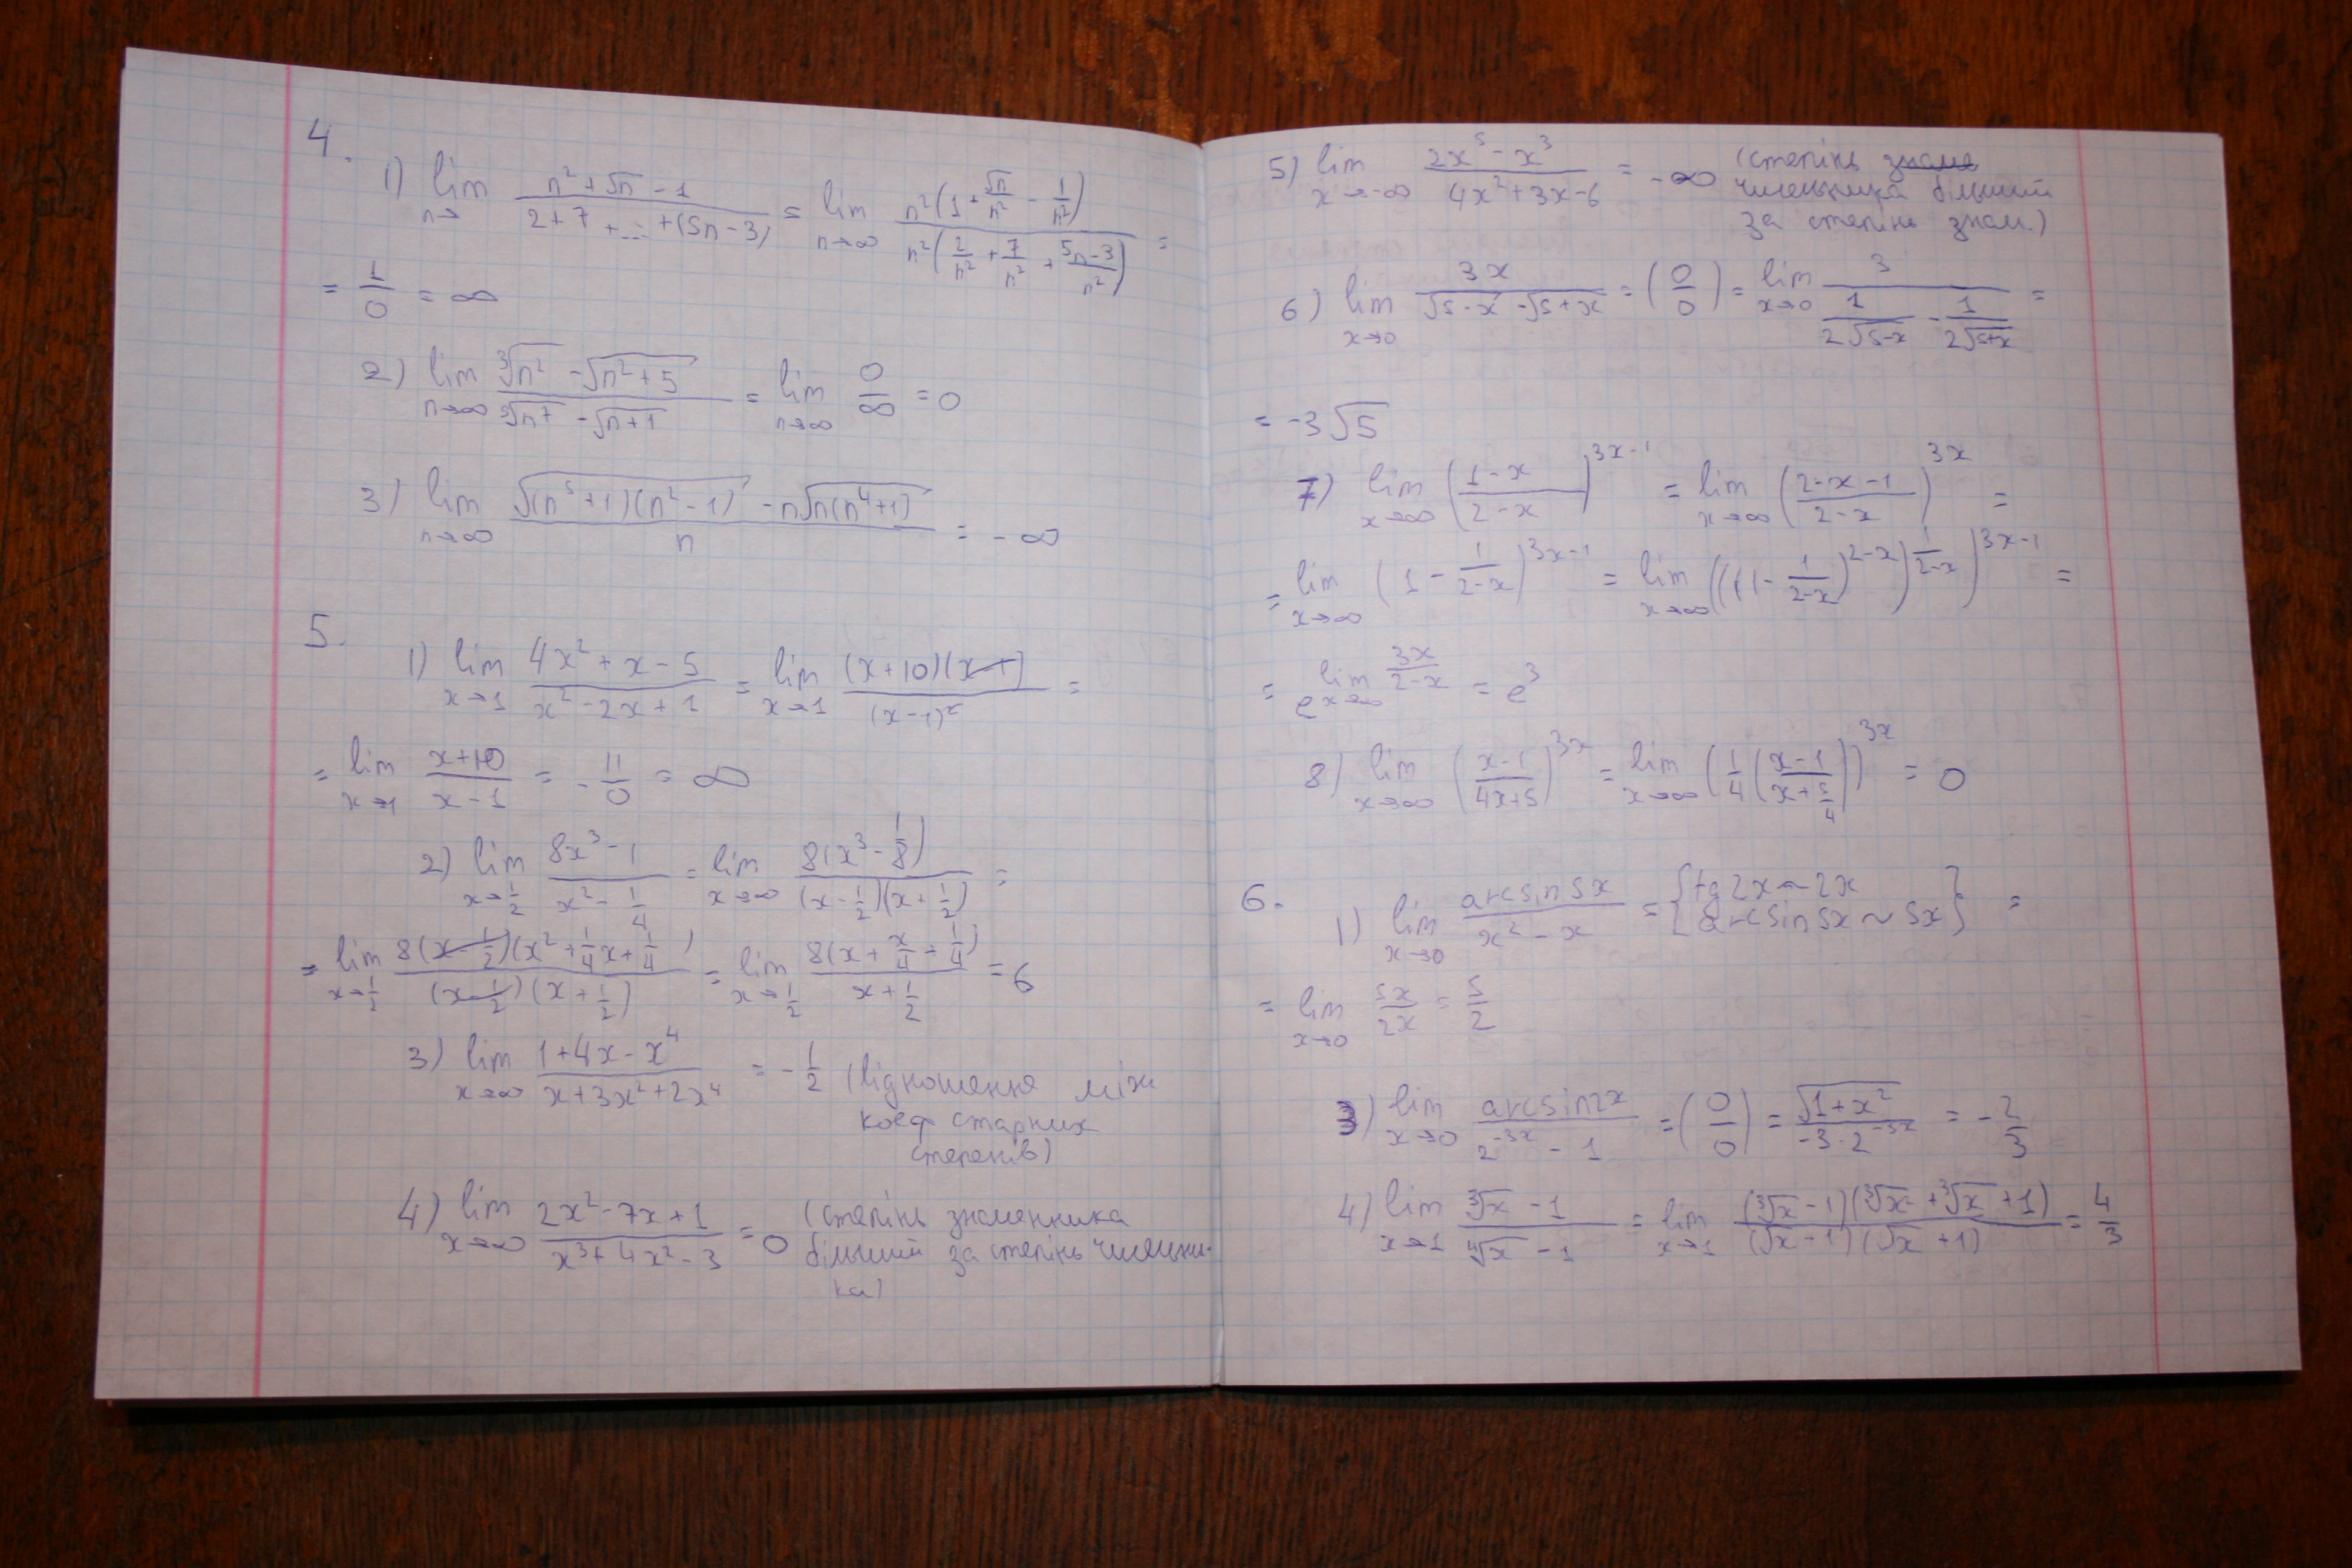 4.
1) lim n→ (n² + √n - 1)/(2 + 7 + ... + (5n - 3)) = lim n→∞ n²(1 + √n/n² - 1/n²)/n²(2/n² + 7/n² + (5n-3)/n²) =
= 1/0 = ∞
2) lim n→∞ (∛n² - √(n²+5))/(⁵√n⁷ - √(n+1)) = lim n→∞ 0/∞ = 0
3) lim n→∞ (√((n⁵+1)(n²-1)) - n√(n(n⁴+1)))/n = -∞
5.
1) lim x→1 (4x² + x - 5)/(x² - 2x + 1) = lim x→1 (x+10)(x-1)/(x-1)² =
= lim x→1 (x+10)/(x-1) = - 11/0 = ∞
2) lim x→1/2 (8x³ - 1)/(x² - 1/4) = lim x→∞ 8(x³ - 1/8)/(x - 1/2)(x + 1/2) =
= lim x→1/2 8(x - 1/2)(x² + 1/4x + 1/4)/(x - 1/2)(x + 1/2) = lim x→1/2 8(x + x/4 + 1/4)/(x + 1/2) = 6
3) lim x→∞ (1 + 4x - x⁴)/(x + 3x² + 2x⁴) = - 1/2 (відношення між
коеф старших
степенів)
4) lim x→∞ (2x² - 7x + 1)/(x³ + 4x² - 3) = 0 (степінь знаменника
більший за степінь чисельни-
ка)
5) lim x→-∞ (2x⁵ - x³)/(4x² + 3x - 6) = -∞ (степінь знаме
чисельника більший
за степінь знам.)
6) lim x→0 3x/(√(5-x) - √(5+x)) = (0/0) = lim x→0 3/(1/(2√(5-x)) - 1/(2√(5+x))) =
= -3√5
7) lim x→∞ ((1-x)/(2-x))^(3x-1) = lim x→∞ ((2-x-1)/(2-x))^(3x) =
= lim x→∞ (1 - 1/(2-x))^(3x-1) = lim x→∞ (((1 - 1/(2-x))^(2-x))^(1/(2-x)))^(3x-1) =
= e^(lim x→∞ 3x/(2-x)) = e³
8) lim x→∞ ((x-1)/(4x+5))^(3x) = lim x→∞ (1/4((x-1)/(x+5/4)))^(3x) = 0
6.
1) lim x→0 arcsin5x/(x² - x) = {tg2x ~ 2x
arcsin5x ~ 5x} =
= lim x→0 5x/2x = 5/2
3) lim x→0 arcsin2x/(2^(-3x) - 1) = (0/0) = √(1+x²)/(-3·2^(-3x)) = - 2/3
4) lim x→1 (∛x - 1)/(∜x - 1) = lim x→1 (∛x - 1)(∛x + ∛x + 1)/(√x - 1)(√x + 1) = 4/3